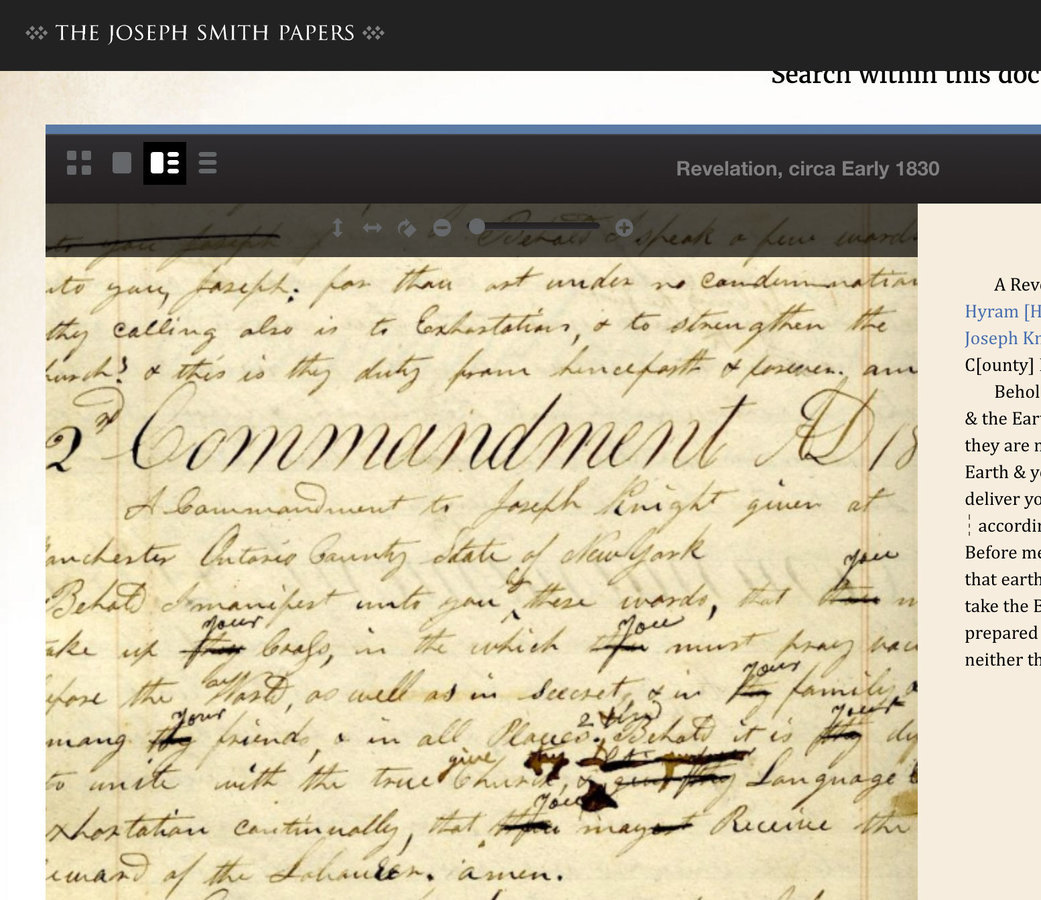 THE JOSEPH SMITH PAPERS
Search within this doc
Revelation, circa Early 1830
to you Joseph Behold I speak a few words
nto you, Joseph; for thou art under no condemnation
thy calling also is to Exhortation, & to strengthen the
hurch; & this is thy duty from henceforth & forever. am
2nd Commandment AD 18
A Commandment to Joseph Knight given at
anchester Ontario County State of New York
you
Behold I manifest unto you by these words, that thou m
your you
ake up thy Cross, in the which thou must pray voc
your
efore the World, as well as in seecret, & in thy family, &
your your
mang thy friends, & in all Places. Behold it is thy du
give
to unite with the true Church, & give thy Language t
you
xhortation continually, that thou mayest Receive the
eward of the Labourer. amen.
A Reve
Hyram [H
Joseph Kn
C[ounty]
Behol
& the Ear
they are n
Earth & yo
deliver yo
accordin
Before me
that earth
take the B
prepared
neither th